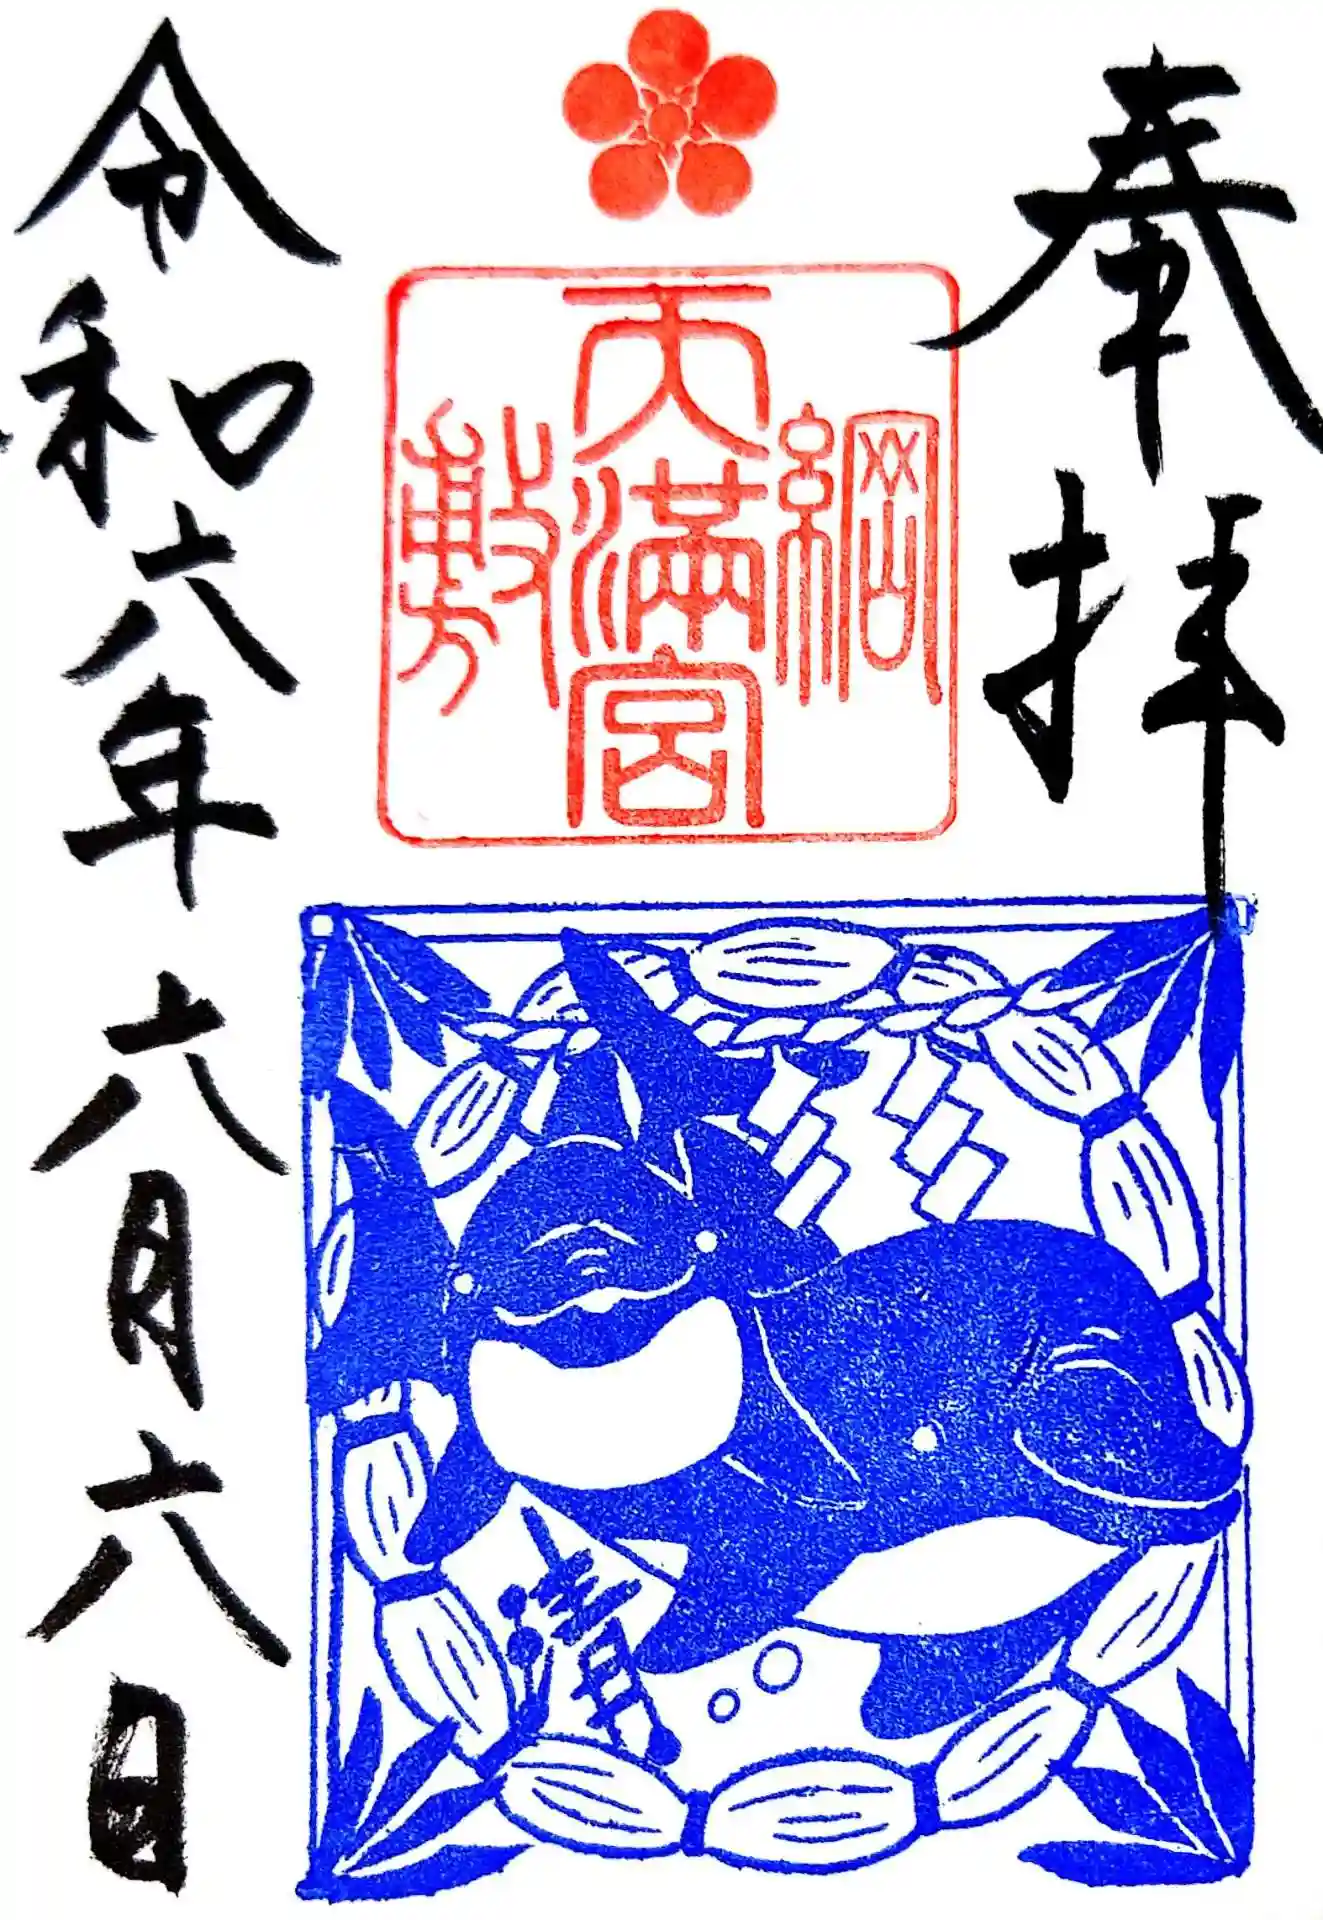 奉拝
綱
天満宮
敷
清
令和六年六月六日